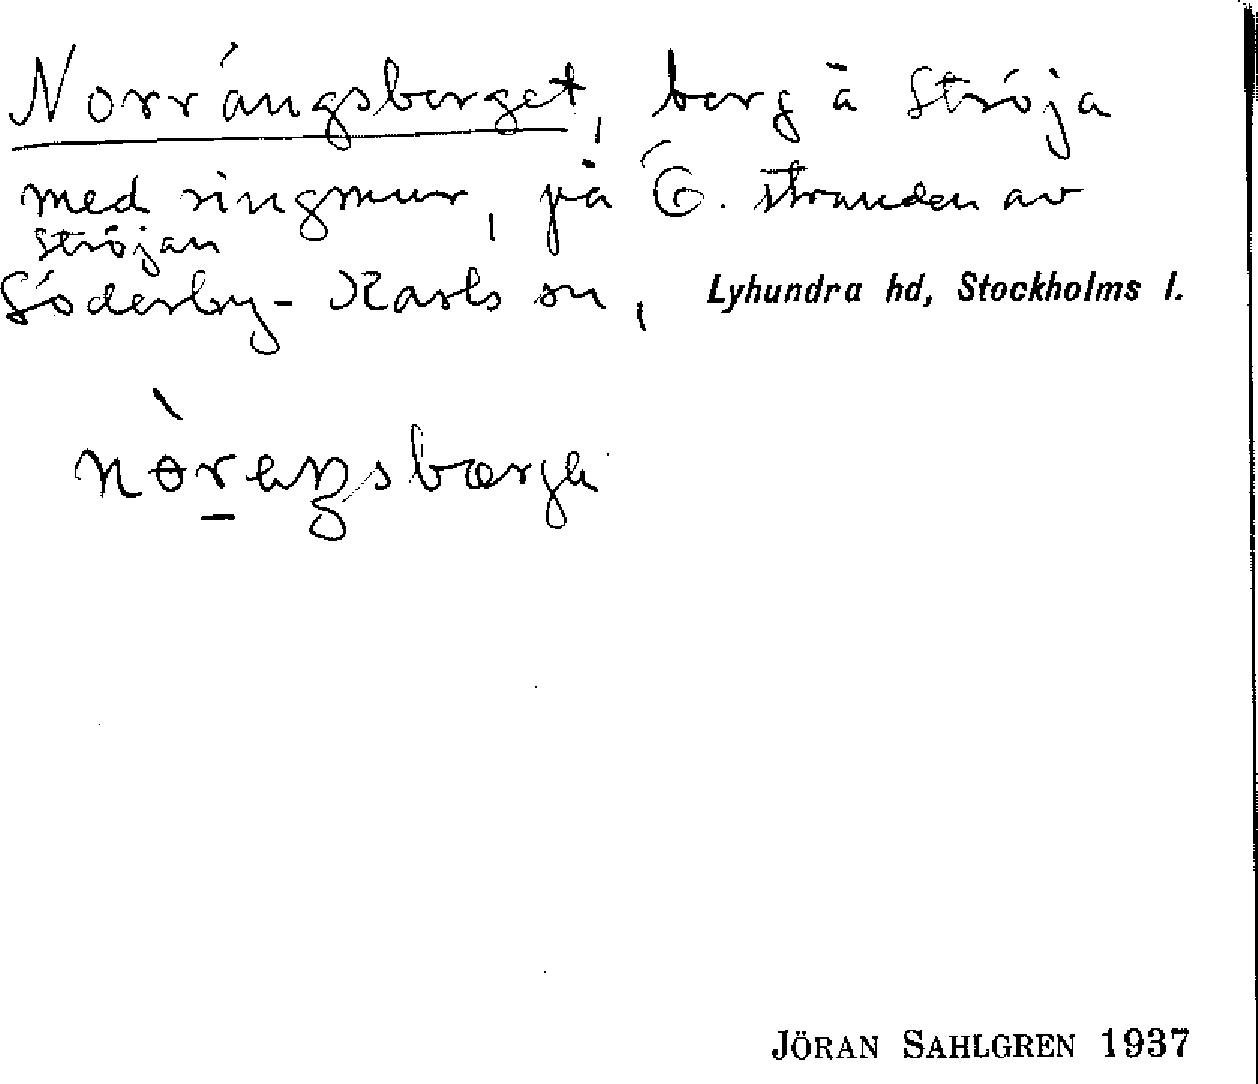 Norrängsberget, berg å Ströja
med ringmur, på Ö. stranden av
Ströjan
Söderby-Karls sn, Lyhundra hd, Stockholms l.
nòreŋsbærge
JÖRAN SAHLGREN 1937